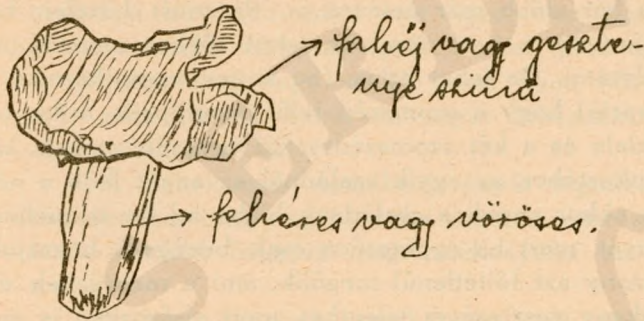 fahéj vagy geszte-
nye szinű
fehéres vagy vöröses.